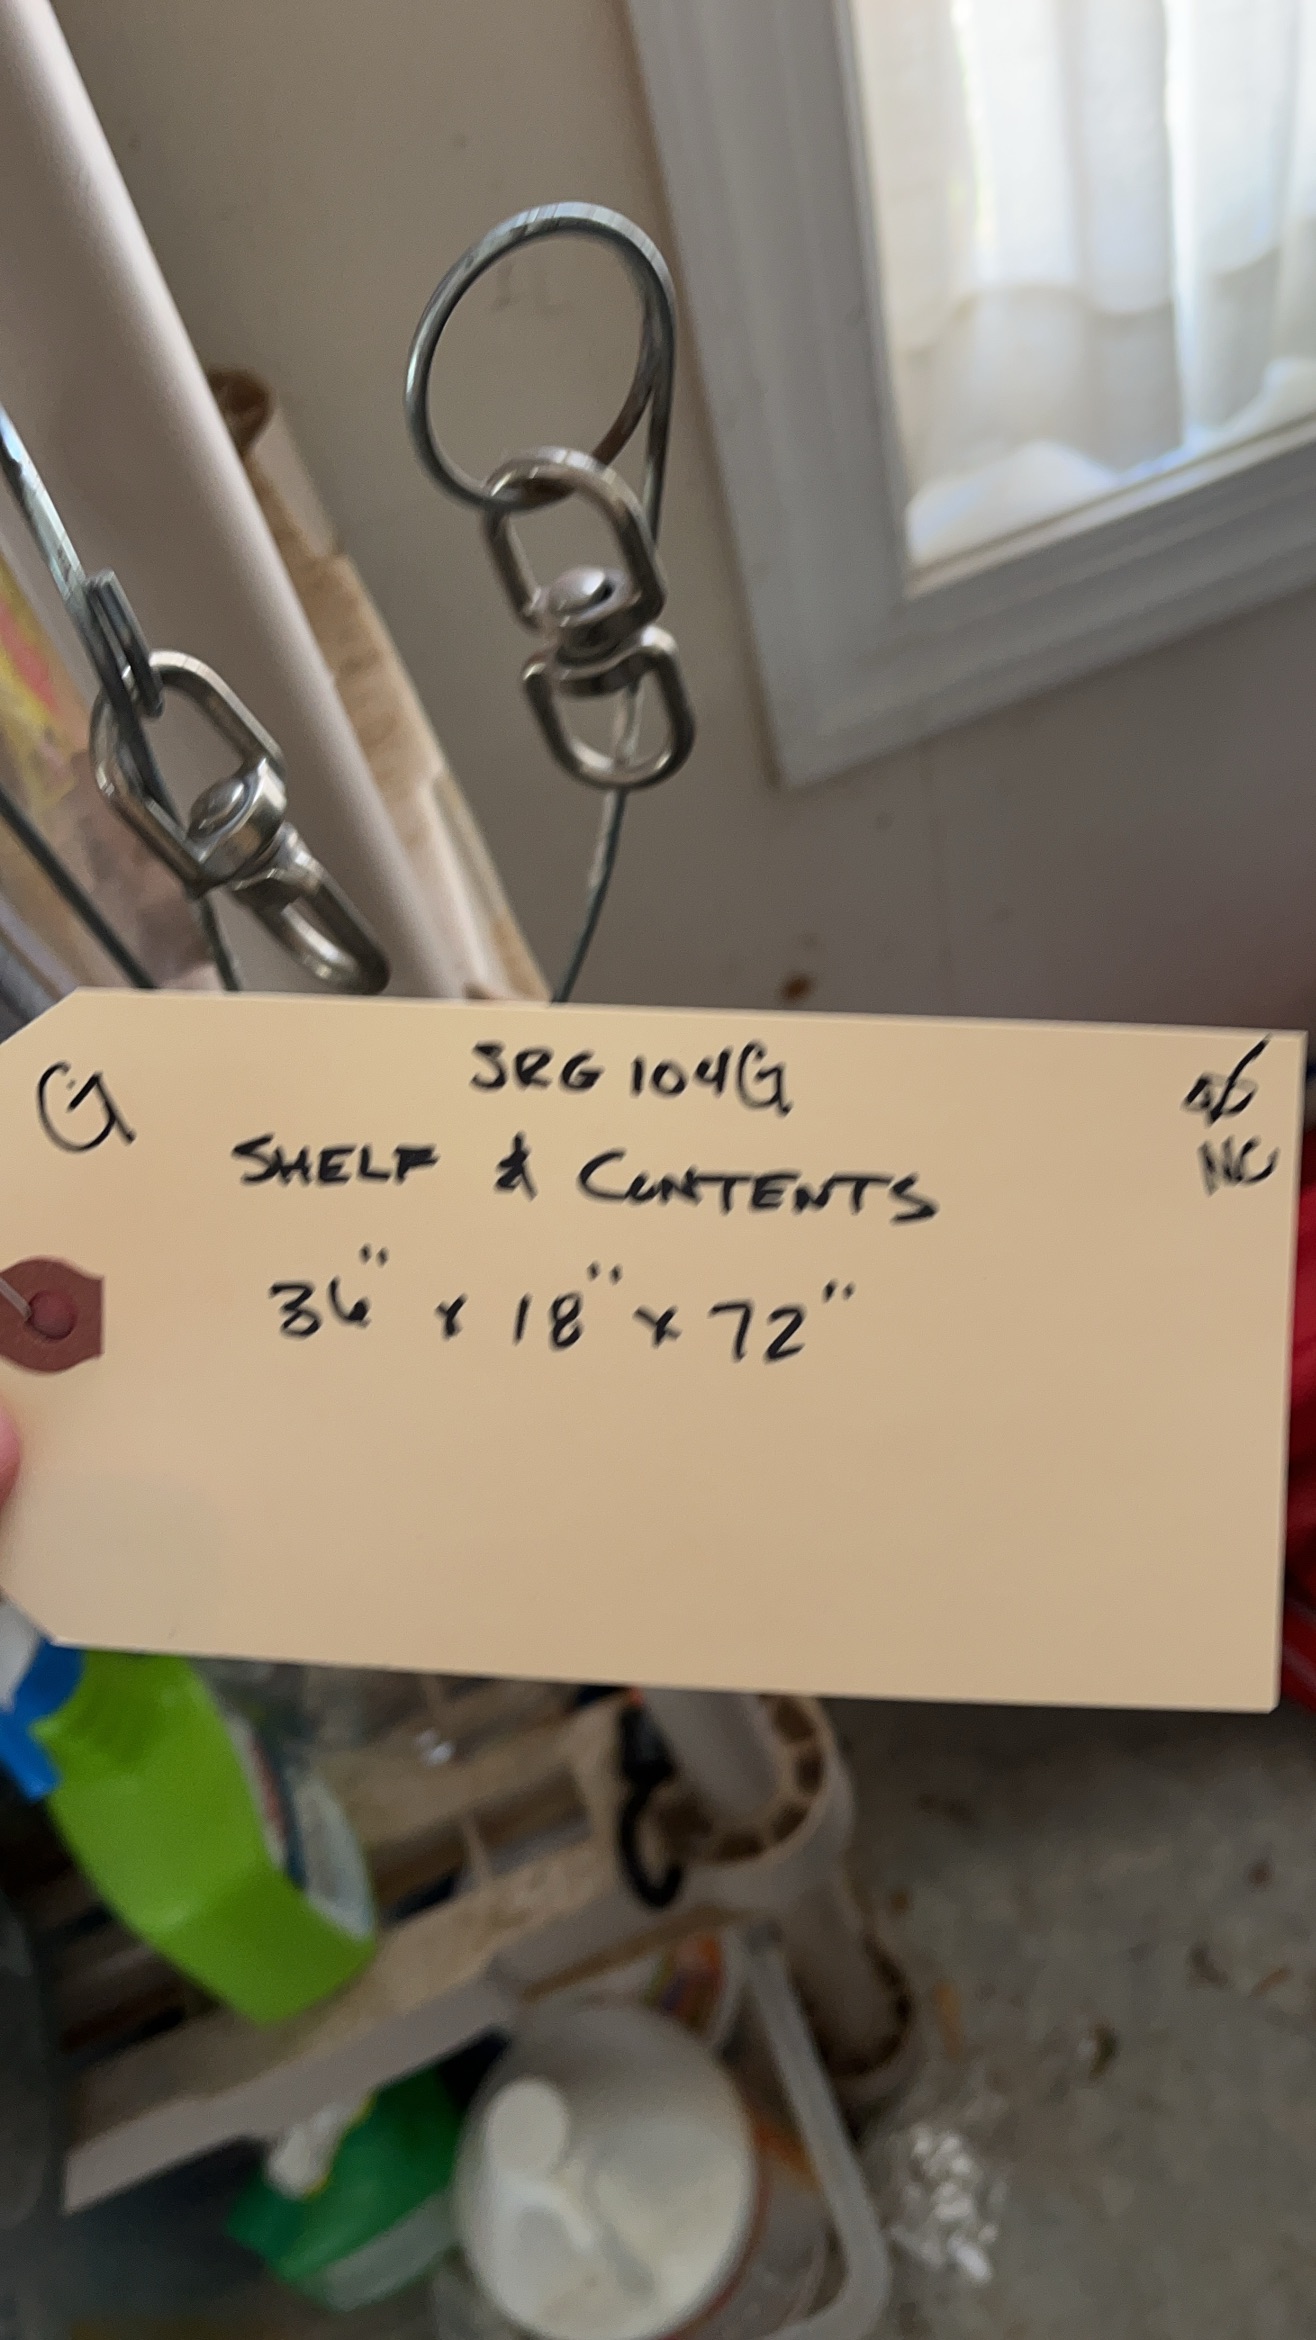 G
SRG 104G
SHELF & CONTENTS
36" x 18" x 72"
NC